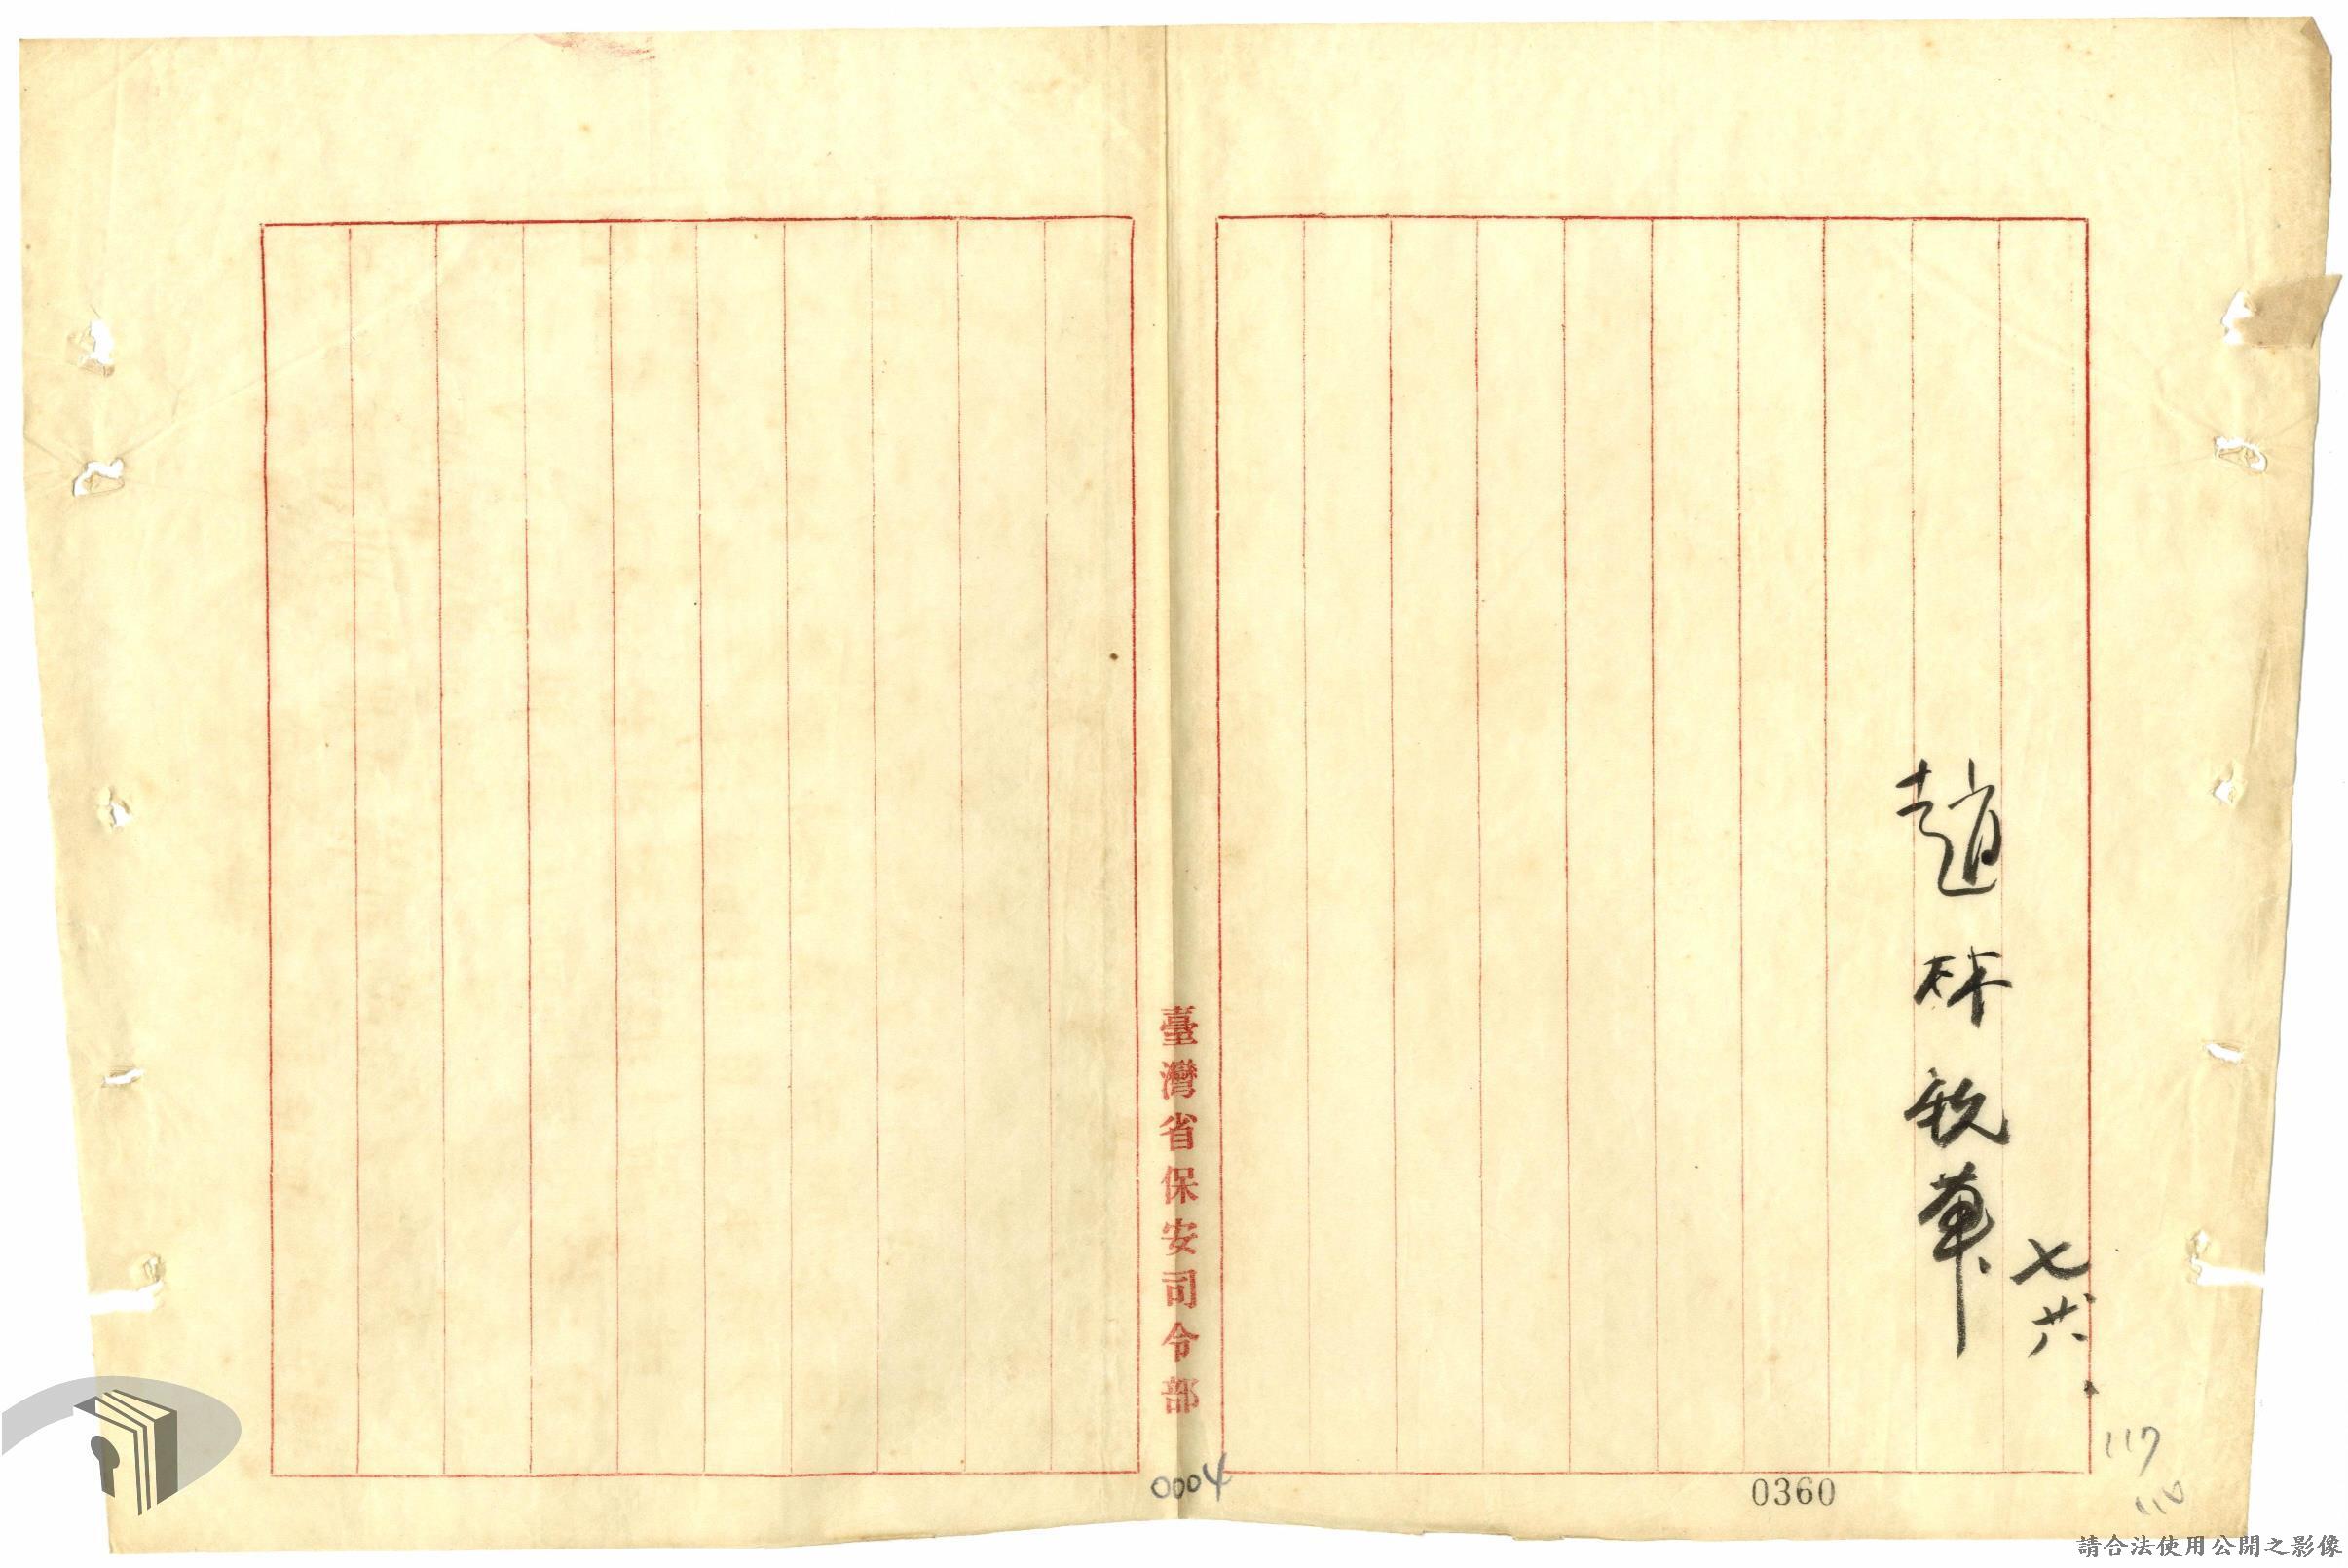 七廿六.
趙
臺灣省保安司令部
0004
0360
117
110
請合法使用公開之影像